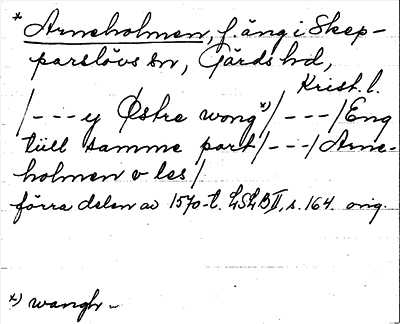 * Arneholmen, f. äng i Skep-
parslövs sn, Gärds hd,
Krist. l.
/---y Østre wong *)/---/Eng
tüll samme part/---/Arne-
holmen v les/
förra delen av 1570-t. LSLB II, s. 164. orig.
*) wangh-